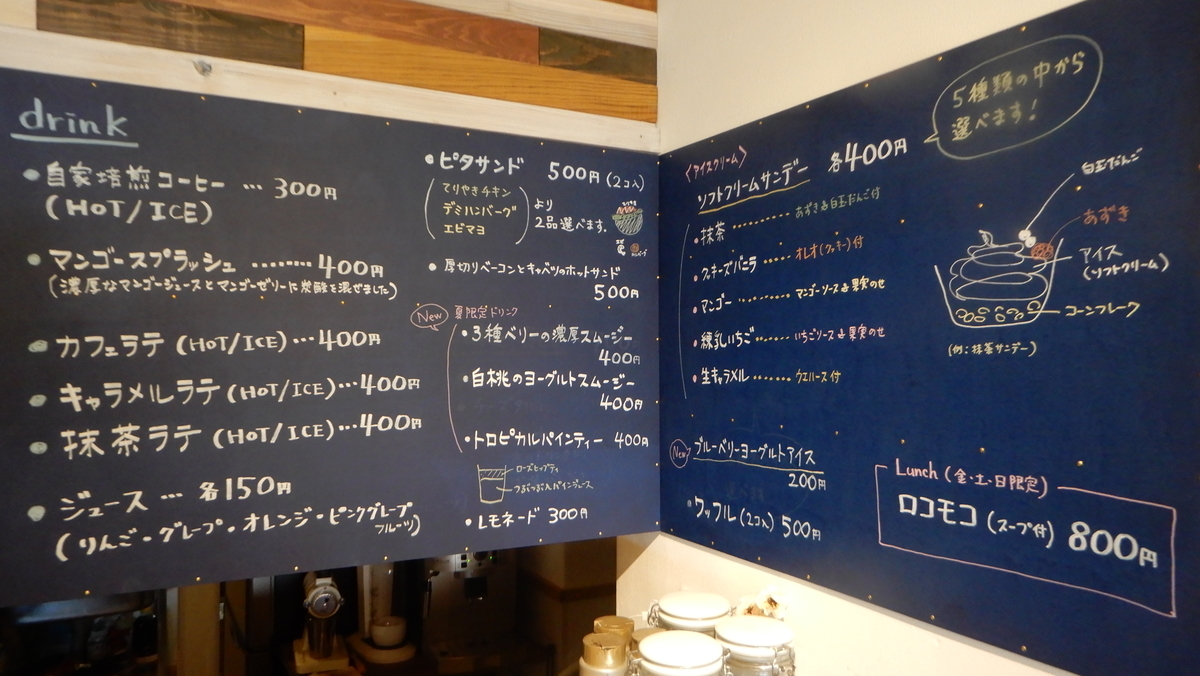 drink
・自家焙煎コーヒー … 300円
(HOT/ICE)
・マンゴースプラッシュ ……… 400円
(濃厚なマンゴージュースとマンゴーゼリーに炭酸を混ぜました)
・カフェラテ (HOT/ICE)…400円
・キャラメルラテ (HOT/ICE)…400円
・抹茶ラテ (HOT/ICE)…400円
・ジュース … 各150円
(りんご・グレープ・オレンジ・ピンクグレープ
フルーツ)
・ピタサンド 500円 (2コ入)
てりやきチキン
デミハンバーグ
エビマヨ
より
2品選べます.
・厚切りベーコンとキャベツのホットサンド
500円
New 夏限定ドリンク
・3種ベリーの濃厚スムージー
400円
・白桃のヨーグルトスムージー
400円
・トロピカルパインティー 400円
ローズヒップティ
つぶつぶ入パインジュース
・レモネード 300円
〈アイスクリーム〉
ソフトクリームサンデー 各400円
5種類の中から
選べます!
・抹茶 ……… あずき&白玉だんご付
・スキーズバニラ …… オレオ(クッキー)付
・マンゴー ……… マンゴーソース&果実のせ
・練乳いちご …… いちごソース&果実のせ
・生キャラメル ……… ウエハース付
白玉だんご
あずき
アイス
(ソフトクリーム)
コーンフレーク
(例:抹茶サンデー)
New ブルーベリーヨーグルトアイス
200円
・ワッフル(2コ入) 500円
Lunch (金・土・日限定)
ロコモコ (スープ付) 800円